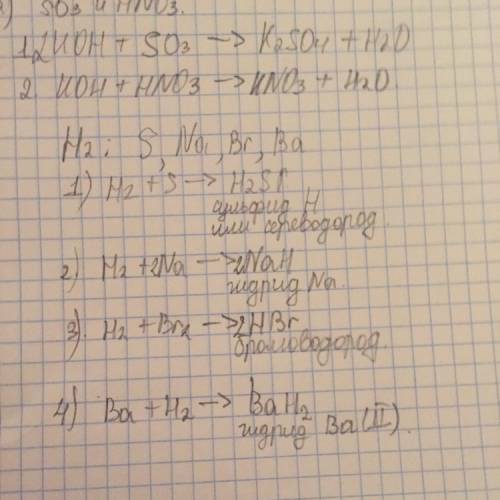 а) SO3 и HNO3.
1. 2KOH + SO3 → K2SO4 + H2O
2. KOH + HNO3 → KNO3 + H2O.
H2: S, Na, Br, Ba
1) H2 + S → H2S↑
сульфид H
или сероводород.
2) H2 + 2Na → 2NaH
гидрид Na.
3). H2 + Br2 → 2HBr
бромоводород.
4) Ba + H2 → BaH2
гидрид Ba(II).